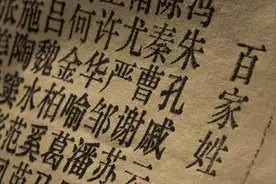 百家姓
冯陈
朱秦尤许何吕施张
孔曹严华金魏陶姜
戚谢邹喻柏水窦
云苏潘葛奚范